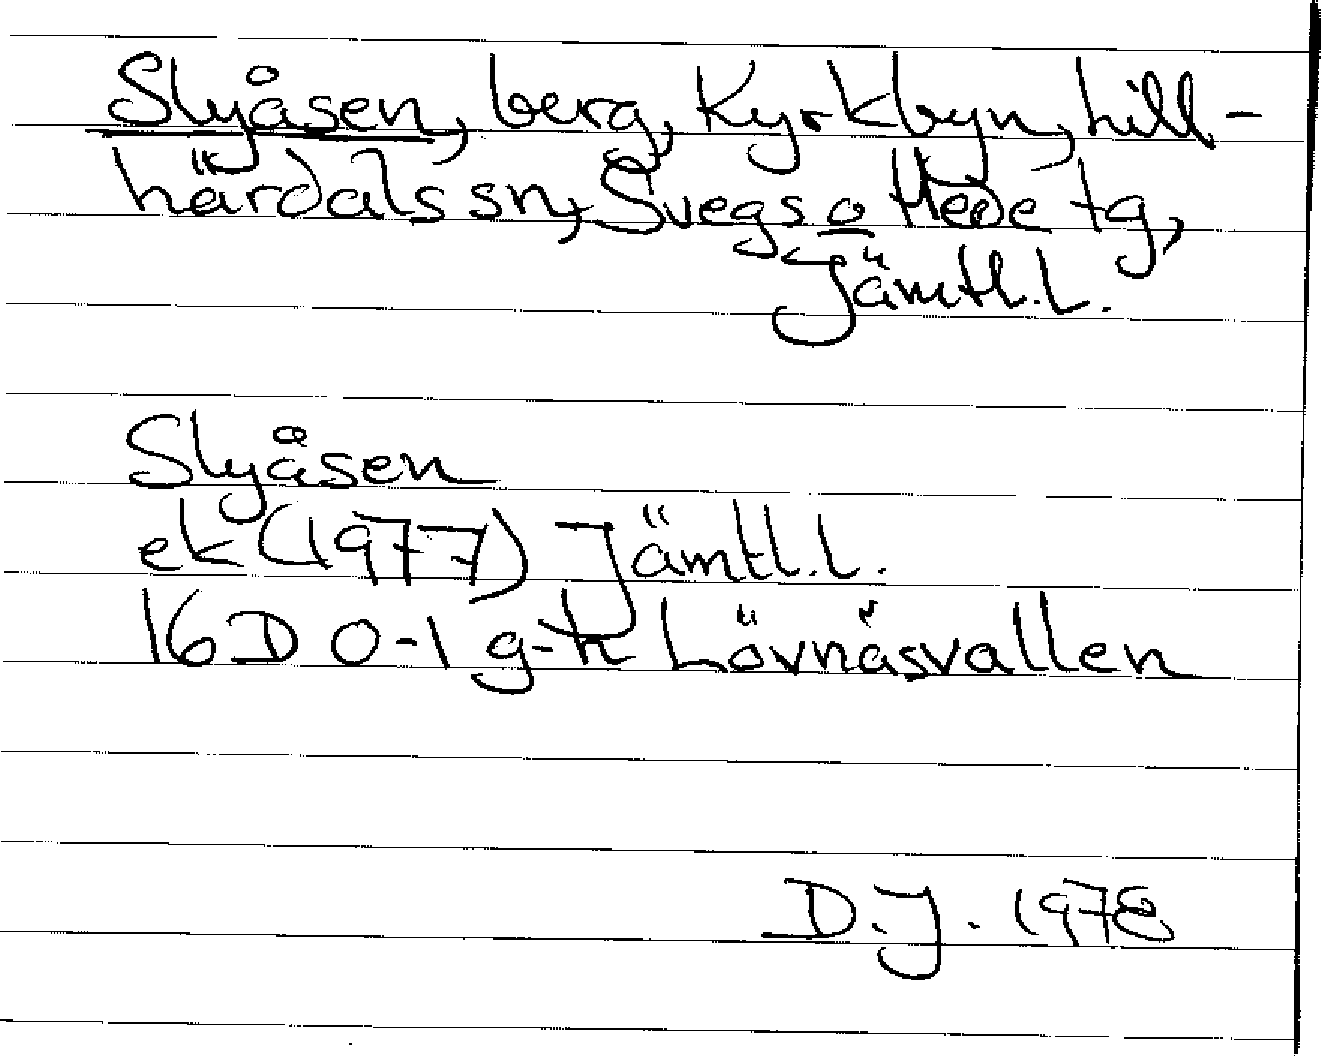 Slyåsen, berg, Kyrkbyn, Lill-
härdals sn, Svegs o Hede tg,
Jämtl.L.
Slyåsen
ek (1977) Jämtl.L.
16 D 0-1 g-h Lövnäsvallen
D.J. 1978